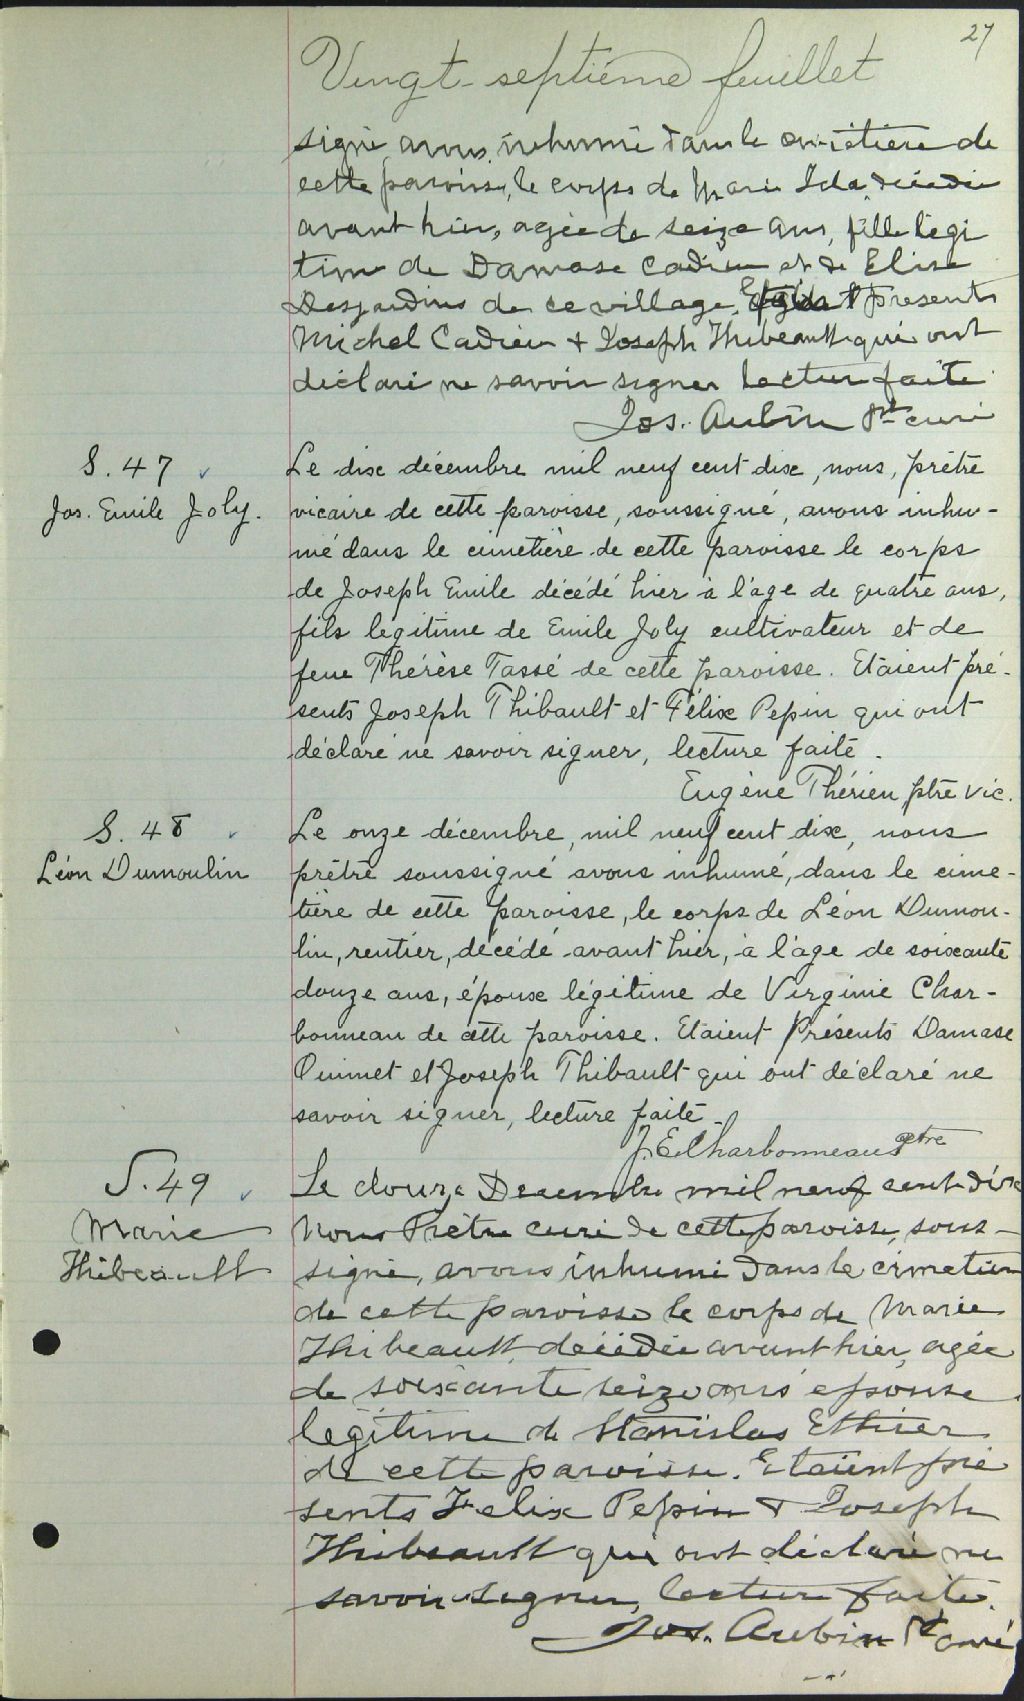 27
Vingt-septième feuillet
signé avons inhumé dans le cimetière de
cette paroisse, le corps de Marie Ida décédée
avant hier, agée de seize ans, fille légi
time de Damase Cadieu et de Elise
Desjardins de ce village. présents
Michel Cadieu + Joseph Thibeault qui ont
déclaré ne savoir signer lecture faite
Jos. Aubin Ptre curé
S. 47
Jos. Emile Joly.
Le dix décembre mil neuf cent dix, nous, prêtre
vicaire de cette paroisse, soussigné, avons inhu-
mé dans le cimetière de cette paroisse le corps
de Joseph Emile décédé hier à l'âge de quatre ans,
fils légitime de Emile Joly cultivateur et de
feue Thérèse Tassé de cette paroisse. Etaient pré-
sents Joseph Thibault et Félix Pepin qui ont
déclaré ne savoir signer, lecture faite.
Eugène Thérien ptre vic.
S. 48
Léon Dumoulin
Le onze décembre, mil neuf cent dix, nous
prêtre soussigné avons inhumé, dans le cime-
tière de cette paroisse, le corps de Léon Dumou-
lin, rentier, décédé avant hier, à l'âge de soixante
douze ans, époux légitime de Virginie Char-
bonneau de cette paroisse. Etaient Présents Damase
Ouimet et Joseph Thibault qui ont déclaré ne
savoir signer, lecture faite.
J. E. Charbonneau ptre
S. 49
Marie
Thibeault
Le douze Decembre mil neuf cent dix
Nous Prêtre curé de cette paroisse, sous-
signé, avons inhumé dans le cimetière
de cette paroisse le corps de Marie
Thibeault, décédée avant hier, agée
de soixante seize ans épouse
légitime de Stanislas Ethier
de cette paroisse. Etaient pré
sents Felix Pepin + Joseph
Thibeault qui ont déclaré ne
savoir signer, lecture faite.
Jos. Aubin Pt curé